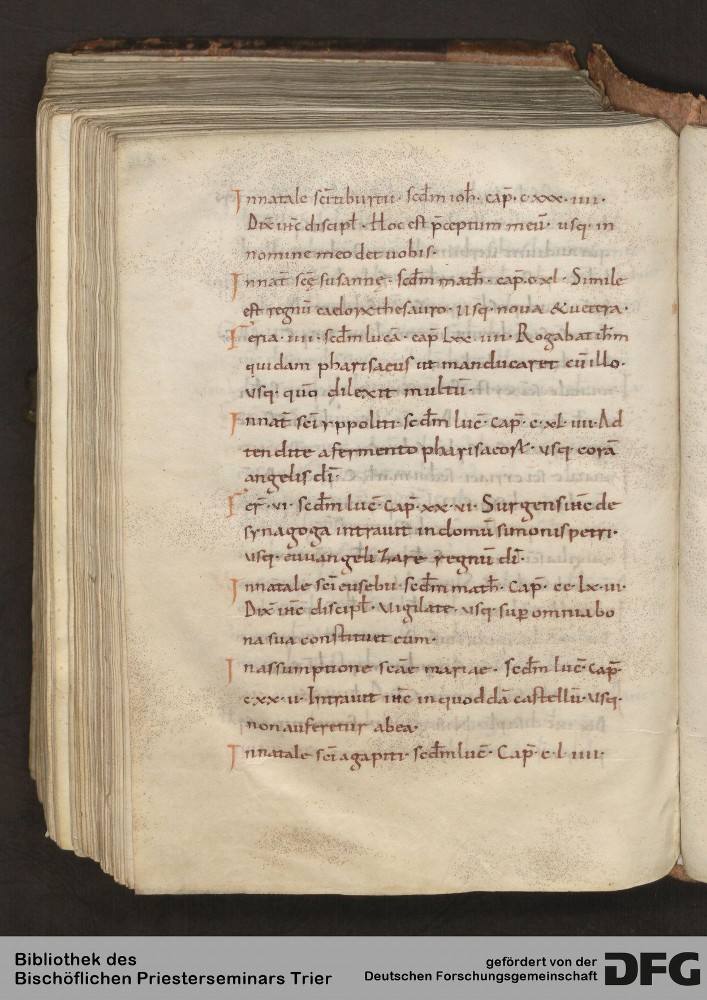 Innatale sc̄i tiburtii · scdm ioh̄ · cap̄ · c · xxx · iiii ·
Dix̄ ih̄c discipl̄ · Hoc est p̄ceptum meū · usq· in
nomine meo det uobis ·
Innat̄ scē susanne · scdm math̄ · cap̄ · c · xl · Simile
est regnū caelorx thesauro · usq· noua & uetera ·
Feria · iiii · scdm lucā · cap̄ lxx · iiii · Rogabat ih̄m
quidam pharisaeus ut manducaret cū illo ·
usq· quō dilexit multū ·
Innat̄ sc̄i yppoliti · scdm luc̄ · cap̄ · c · xl · iiii · Ad
tendite a fermento pharisaeorx · usq· corā
angelis dī ·
Fer̄ · vi · scdm luc̄ · Cap̄ · xx · vi · Surgens ih̄c de
synagoga intrauit in domū simonis petri ·
usq· euuangelizare regnū dī ·
Innatale sc̄i eusebii · scdm math̄ · Cap̄ · cc · lx · iii ·
Dix̄ ih̄c discipl̄ · uigilate · usq· sup̄ omnia bo
na sua constituet eum ·
Inassumptione scāe mariae · scdm luc̄ · cap̄ ·
c · xx · ii · Intrauit ih̄c in quoddā castellū · usq·
non auferetur abea ·
Innatale sc̄i agapiti · scdm luc̄ · Cap̄ · c · l · iiii ·
Bibliothek des
Bischöflichen Priesterseminars Trier
gefördert von der
Deutschen Forschungsgemeinschaft
DFG